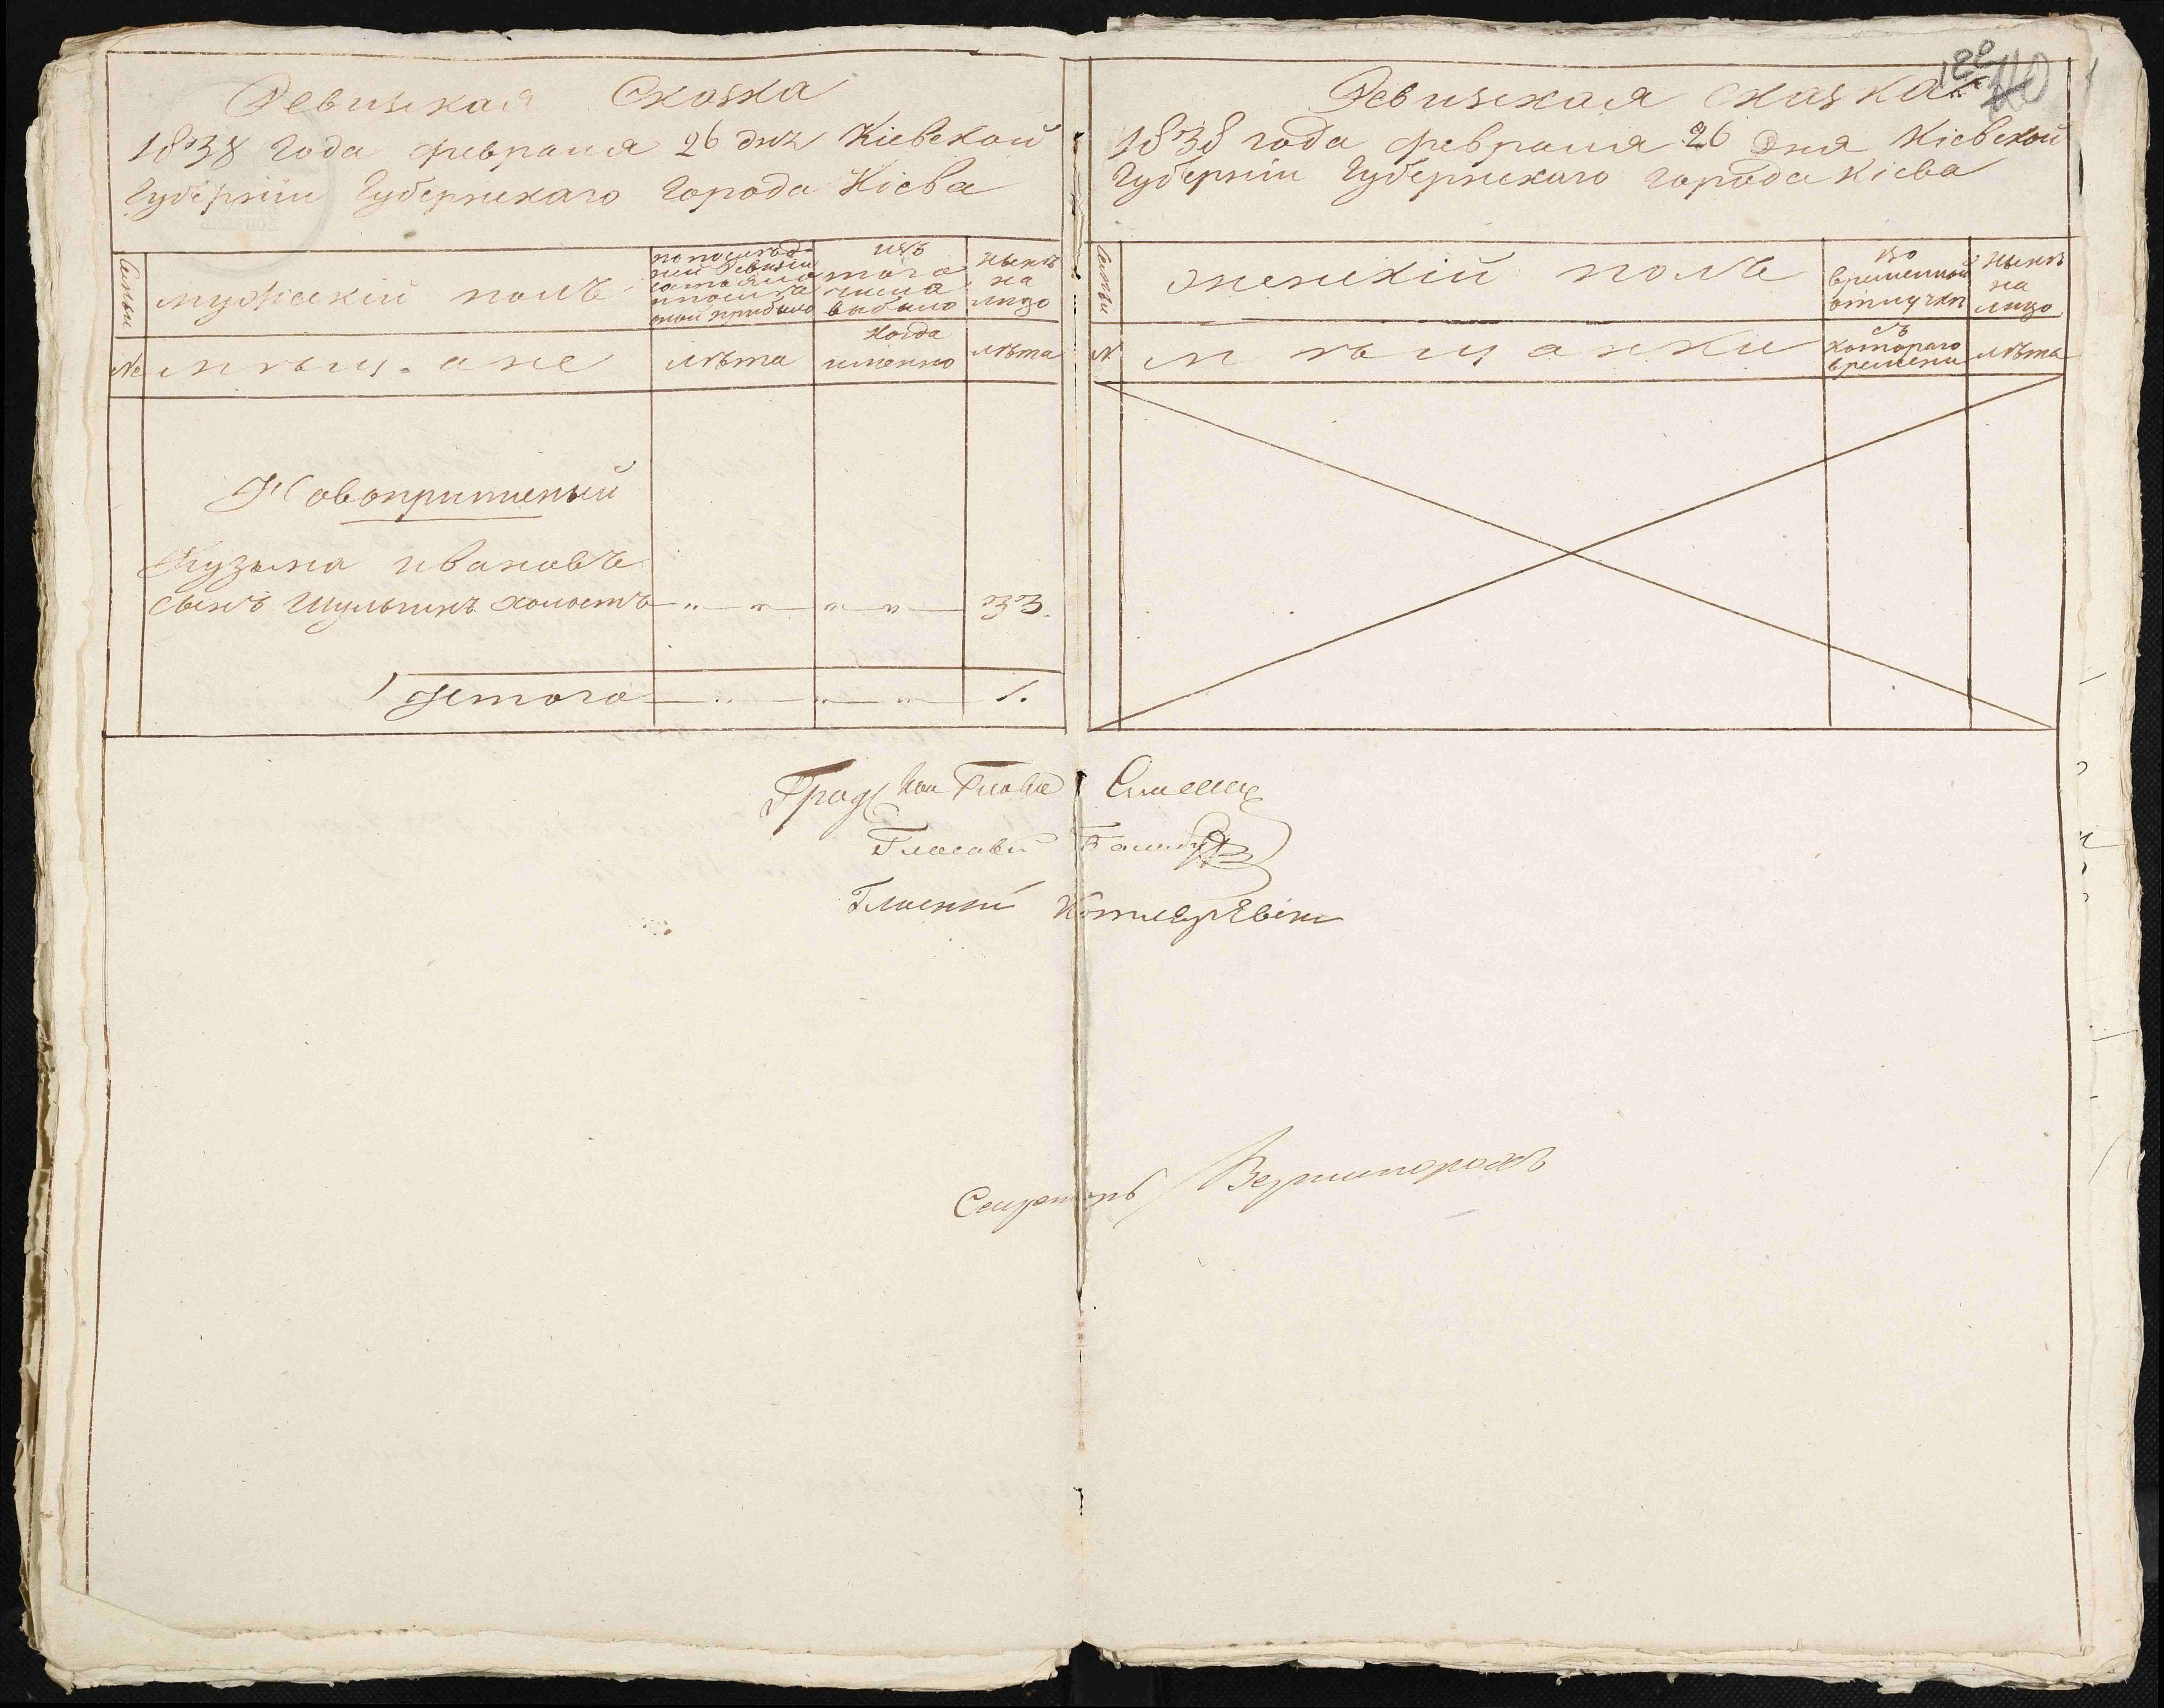 Ревизская Сказка
1838 Года февраля 26 дня Кіевской
Губерніи Губернскаго Города Кіева
Семьи
мужескій полъ
по послѣд
ней Ревизіи
состояло
и послѣ
оной прибыло
изъ
того
числа
выбыло
нынѣ
на
лицо
№
мѣщане
лѣта
когда
именно
лѣта
Новопришлый
Кузьма ивановъ
сынъ Шульгинъ холостъ — „ — „ — „ — „ — 33.
Итого — „ — „ — „ — 1.
Ревизская сказка
120
1838 года февраля 26 Дня Кіевской
Губерніи Губернскаго города Кіева
Семьи
женскій полъ
во
временной
отлучкѣ
нынѣ
на
лицо
№
мѣщанки
съ
котораго
времени
лѣта
Градской Глава
Гласный
Гласный Котляревскій
Секретарь Вернипорохъ